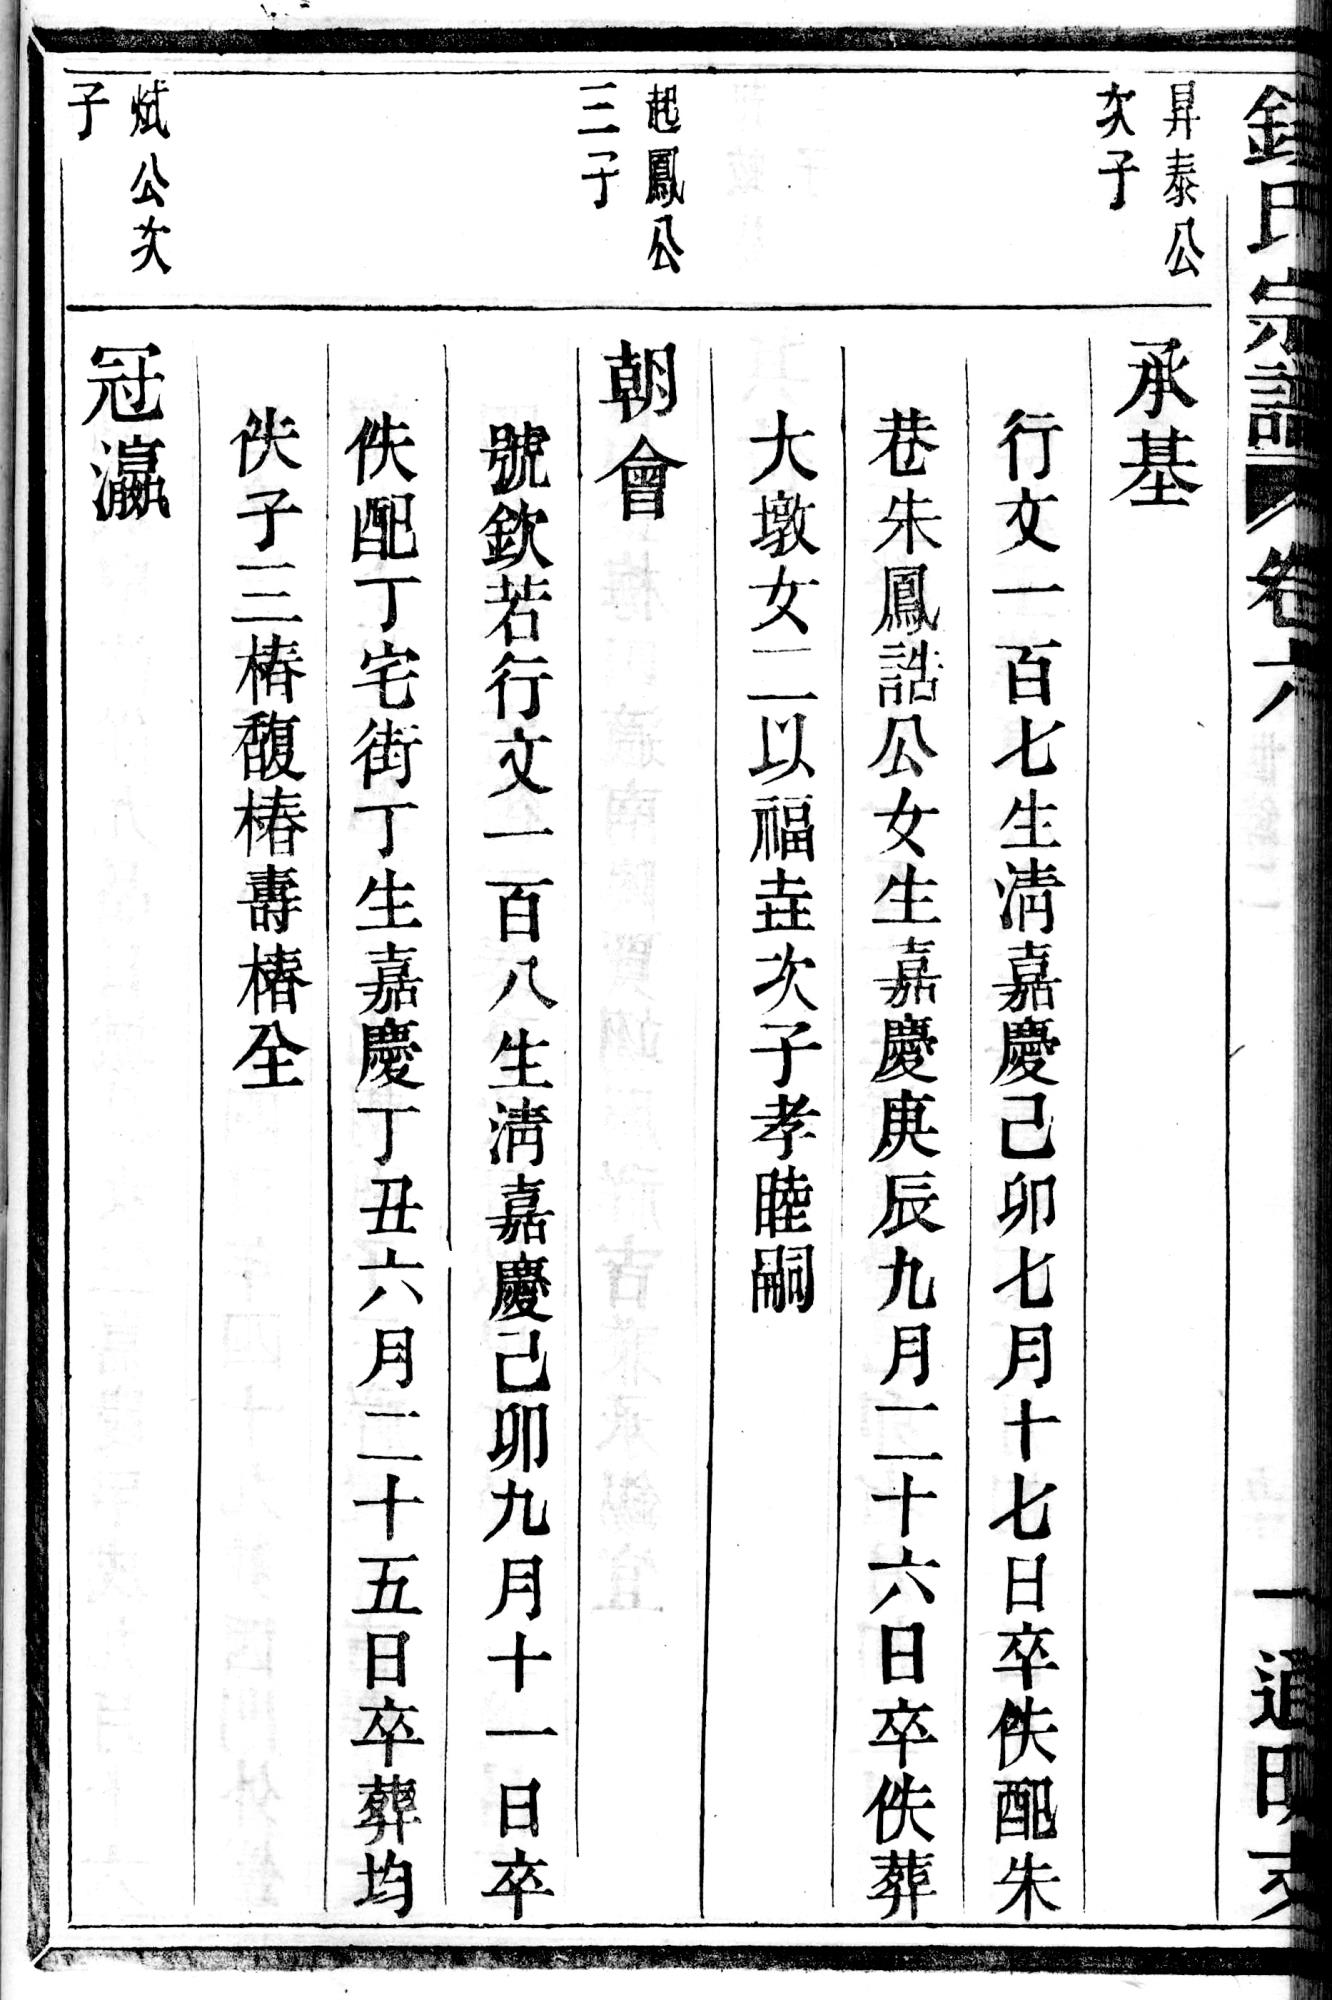 氏宗譜 卷六
昇泰公
次子
承基
行文一百七生淸嘉慶己卯七月十七日卒佚配朱
巷朱鳳誥公女生嘉慶庚辰九月二十六日卒佚葬
大墩女二以福垚次子孝睦嗣
起鳳公
三子
朝會
號欽若行文一百八生淸嘉慶己卯九月十一日卒
佚配丁宅街丁生嘉慶丁丑六月二十五日卒葬均
佚子三椿馥椿壽椿全
烒公次
子
冠瀛